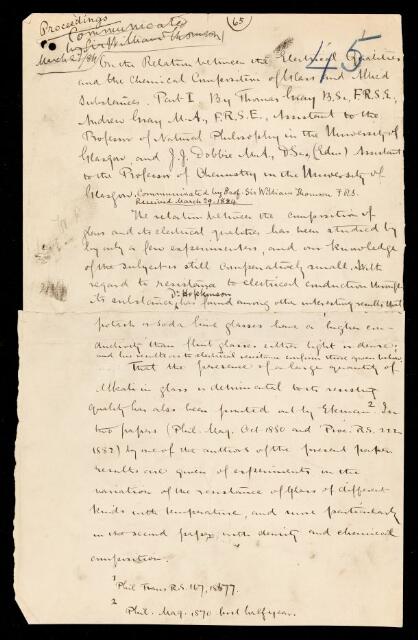 Proceedings
Communicated
by Sir William Thomson
March 27/84
(65)
45
On the Relation between the Electrical Qualities
and the Chemical Composition of Glass and Allied
Substances. Part I. By Thomas Gray B.Sc., F.R.S.E.,
Andrew Gray M.A., F.R.S.E., Assistant to the
Professor of Natural Philosophy in the University of
Glasgow, and J.J. Dobbie M.A., D.Sc., (Edin) Assistant
to the Professor of Chemistry in the University of
Glasgow. Communicated by Prof. Sir William Thomson F.R.S.
Received March 29, 1884
The relation between the composition of
glass and its electrical qualities has been studied by
by only a few experimenters, and our knowledge
of the subject is still comparatively small. With
regard to resistance to electrical conduction through
its substance, Dr Hopkinson 1 has found among other interesting results that
potash or soda lime glasses have a higher con-
ductivity than flint glasses either light or dense;
and his results as to electrical resistance confirm those given below.
That the presence of a large quantity of
Alkali in glass is detrimental to its resisting
quality has also been pointed out by Ekman 2. In
two papers (Phil. Mag. Oct. 1880 and Proc. R.S. 222
1882) by one of the authors of the present paper
results are given of experiments on the
variation of the resistance of glass of different
kinds with temperature, and more particularly
in the second paper, with density and chemical
composition.
1 Phil Trans R.S. 167, 1877.
2 Phil. Mag. 1870 first half year.